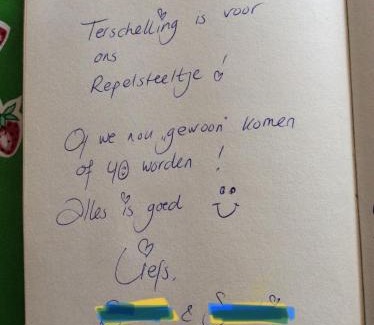 Terschelling is voor
ons
Repelsteeltje!
Of we nou „gewoon" komen
of 40 worden!
Alles is goed
Liefs.
&